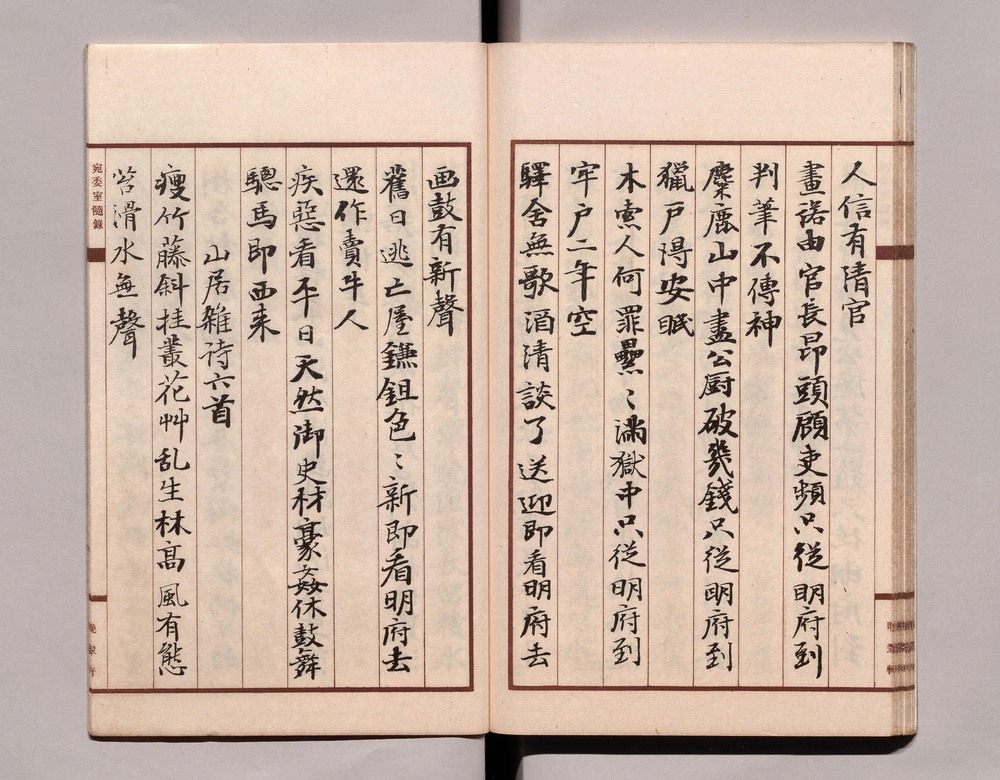 人信有清官
畫諾由官長昂頭顧吏頻只從明府到
判筆不傳神
麋鹿山中盡公厨破幾錢只從明府到
獵戸得安眠
木索人何罪纍〻滿獄中只從明府到
牢戸二年空
驛舍無歌酒清談了送迎即看明府去
画鼓有新聲
舊日逃亡屋鐮鉏色〻新即看明府去
還作賣牛人
疾惡看平日天然御史材豪姦休鼓舞
驄馬即西来
山居雑诗六首
瘦竹藤斜挂叢花艸乱生林高風有態
苔滑水無聲
宛委室隨錄